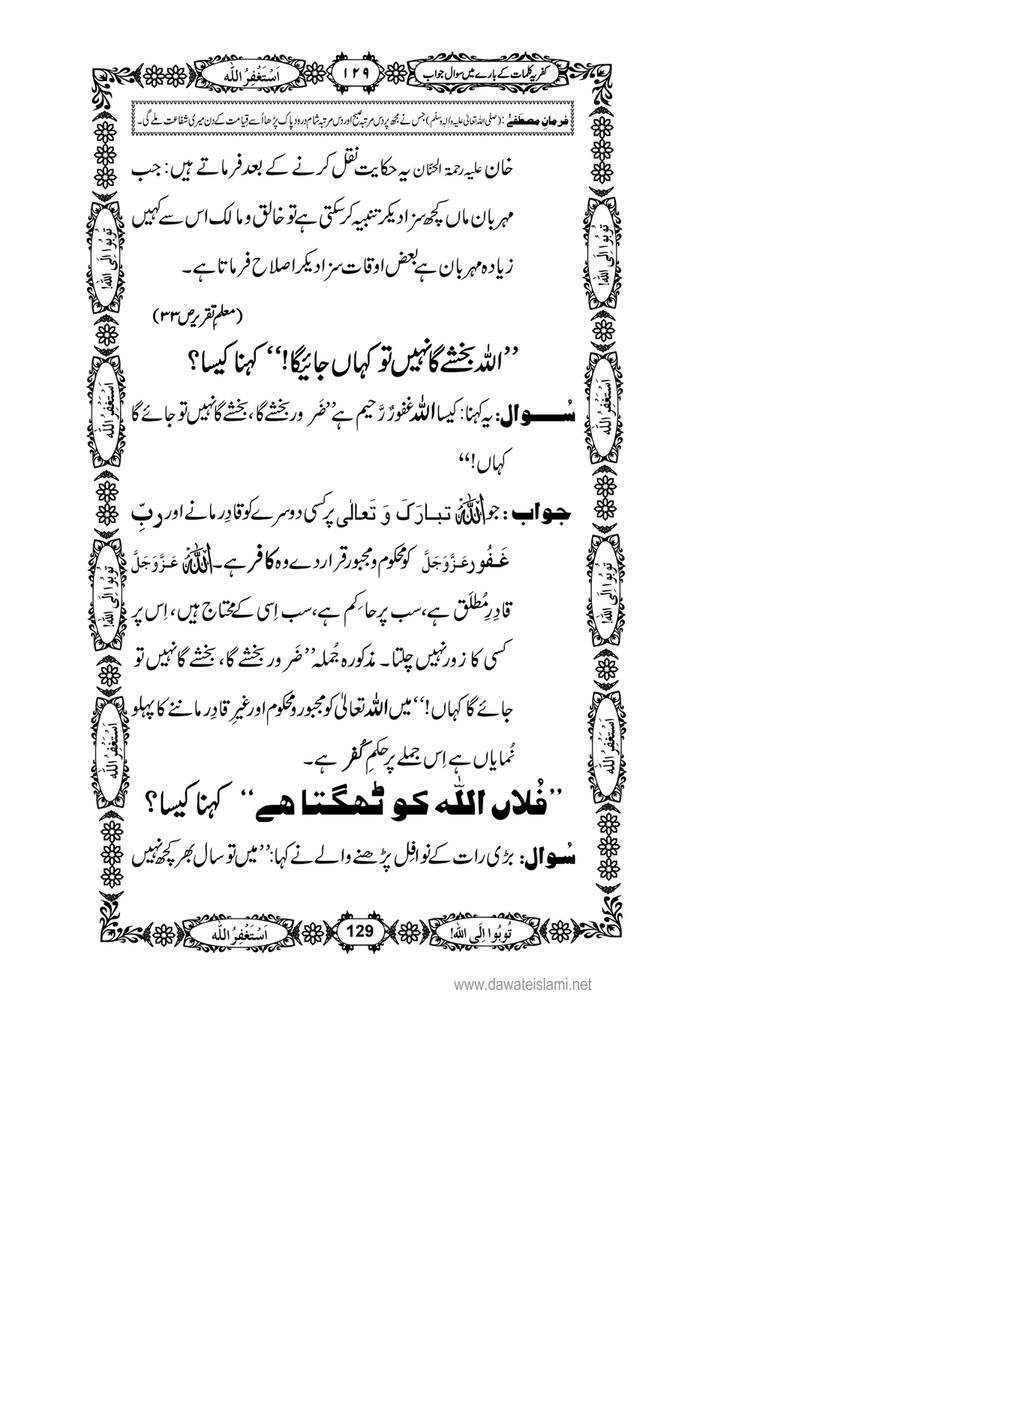 کفریہ کلمات کے بارے میں سوال جواب ۱۲۹ اَسْتَغْفِرُ اللّٰه
فرمانِ مصطَفٰے : (صلی اللہ تعالیٰ علیہ والہ وسلم) جس نے مجھ پر دس مرتبہ صبح اور دس مرتبہ شام درود پاک پڑھا اُسے قیامت کے دن میری شفاعت ملے گی۔
خان علیہ رحمۃ الحنّان یہ حکایت نقل کرنے کے بعد فرماتے ہیں: جب
مہربان ماں کچھ سزا دیکر تنبیہ کر سکتی ہے تو خالق و مالک اس سے کہیں
زیادہ مہربان ہے بعض اوقات سزا دیکر اصلاح فرماتا ہے۔
(معلم تقریر ص۳۳)
’’اللہ بخشے گا نہیں تو کہاں جائیگا!‘‘ کہنا کیسا؟
سُوال: یہ کہنا: کیسا اللہ غفورٌ رَّحیم ہے’’ضَرور بخشے گا، بخشے گا نہیں تو جائے گا
کہاں!‘‘
جواب : جو اللہ تبارَکَ وَ تَعالٰی پر کسی دوسرے کو قادِر مانے اور ربِّ
غَفُور عَزَّوَجَلَّ کو محکوم و مجبور قرار دے وہ کافر ہے۔ اللہ عَزَّوَجَلَّ
قادِرِ مُطلَق ہے، سب پر حاکِم ہے، سب اِسی کے محتاج ہیں، اِس پر
کسی کا زور نہیں چلتا۔ مذکورہ جُملہ’’ضَرور بخشے گا، بخشے گا نہیں تو
جائے گا کہاں!‘‘ میں اللہ تعالیٰ کو مجبور و محکوم اور غیرِ قادِر ماننے کا پہلو
نُمایاں ہے اِس جملے پر حکمِ کُفر ہے۔
’’فُلاں اللّٰہ کو ٹھگتا ھے‘‘ کہنا کیسا؟
سُوال: بڑی رات کے نوافِل پڑھنے والے نے کہا:’’میں تو سال بھر کچھ نہیں
تُوبُوا اِلَی اللّٰه!
اَسْتَغْفِرُ اللّٰه
تُوبُوا اِلَی اللّٰه!
اَسْتَغْفِرُ اللّٰه
تُوبُوا اِلَی اللّٰه!
اَسْتَغْفِرُ اللّٰه
تُوبُوا اِلَی اللّٰه!
اَسْتَغْفِرُ اللّٰه
تُوبُوا اِلَی اللّٰه! 129 اَسْتَغْفِرُ اللّٰه
www.dawateislami.net